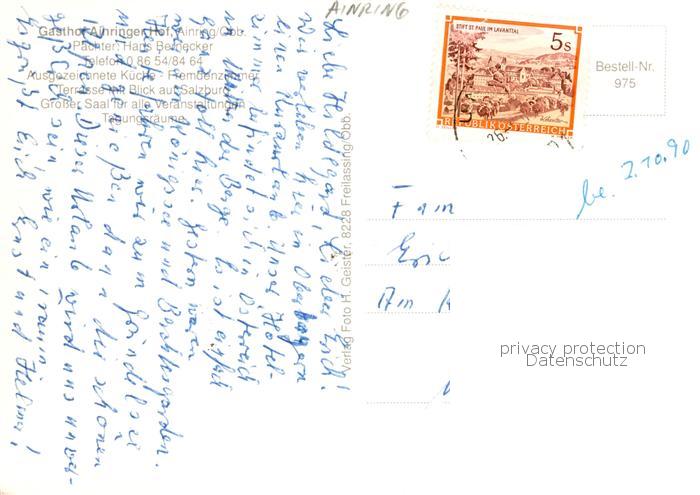 AINRING
Gasthof Ainringer Hof, Ainring/Obb.
Pächter: Hans Bernecker
Telefon 0 86 54/84 64
Ausgezeichnete Küche - Fremdenzimmer
Terrasse mit Blick auf Salzburg
Großer Saal für alle Veranstaltungen
Tagungsräume
Liebe Hildegard, lieber Erich!
Wir verleben hier in Oberbayern
einen Kurzurlaub. Unser Hotel-
zimmer befindet sich in Österreich
der Berge. Es ist einfach
ganz toll hier. Gestern waren
wir am Königssee und Berchtesgaden.
Heute fahren wir zum
und genießen dann die schönen
Dieser Urlaub wird uns unver-
geßlich sein, wie ein Traum.
Es grüßt Euch Ernst und Helma!
Verlag Foto H. Geister, 8228 Freilassing/Obb.
STIFT ST. PAUL IM LAVANTTAL
5s
REPUBLIK ÖSTERREICH
Bestell-Nr.
975
be. 2.10.90
Fam
Eric
Am
privacy protection
Datenschutz